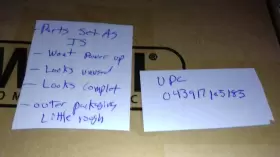 - Parts Set As
IS
- Wont Power up
- Looks unused
- Looks complet
- outer packaging
Little rough
UPC
043917105183